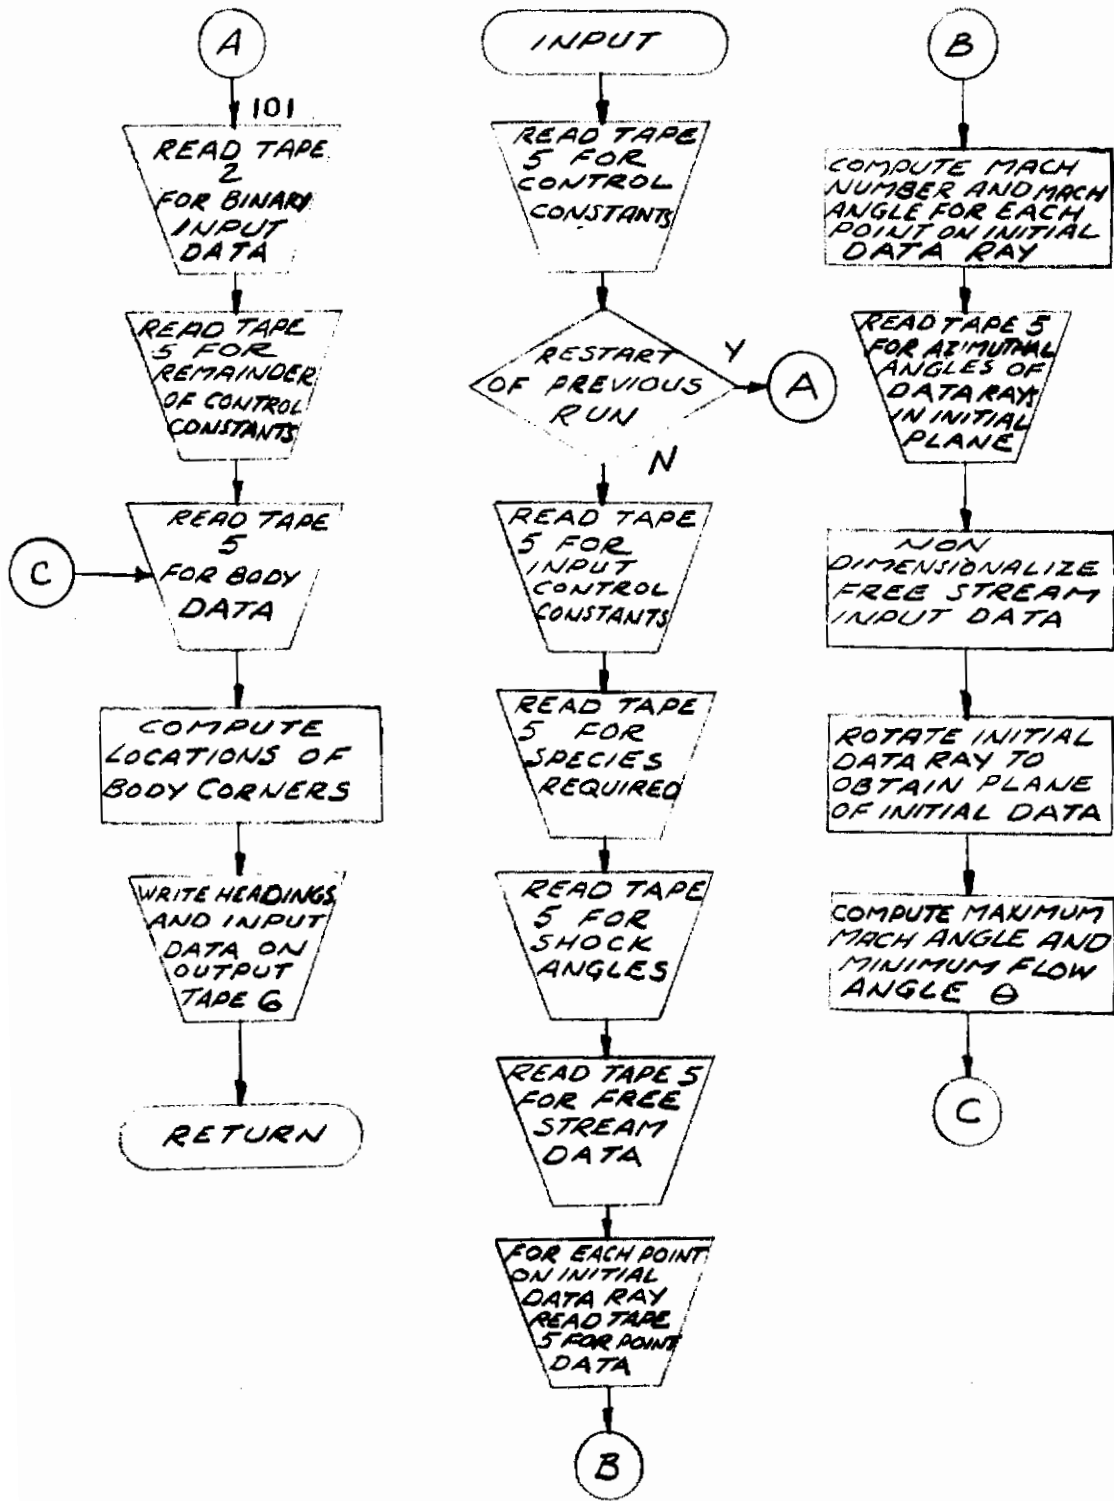 A
101
READ TAPE
2
FOR BINARY
INPUT
DATA
READ TAPE
5 FOR
REMAINDER
OF CONTROL
CONSTANTS
C
READ TAPE
5
FOR BODY
DATA
COMPUTE
LOCATIONS OF
BODY CORNERS
WRITE HEADINGS
AND INPUT
DATA ON
OUTPUT
TAPE 6
RETURN
INPUT
READ TAPE
5 FOR
CONTROL
CONSTANTS
RESTART
OF PREVIOUS
RUN
Y
A
N
READ TAPE
5 FOR
INPUT
CONTROL
CONSTANTS
READ TAPE
5 FOR
SPECIES
REQUIRED
READ TAPE
5 FOR
SHOCK
ANGLES
READ TAPE 5
FOR FREE
STREAM
DATA
FOR EACH POINT
ON INITIAL
DATA RAY
READ TAPE
5 FOR POINT
DATA
B
B
COMPUTE MACH
NUMBER AND MACH
ANGLE FOR EACH
POINT ON INITIAL
DATA RAY
READ TAPE 5
FOR AZIMUTHAL
ANGLES OF
DATA RAYS
IN INITIAL
PLANE
NON
DIMENSIONALIZE
FREE STREAM
INPUT DATA
ROTATE INITIAL
DATA RAY TO
OBTAIN PLANE
OF INITIAL DATA
COMPUTE MAXIMUM
MACH ANGLE AND
MINIMUM FLOW
ANGLE θ
C